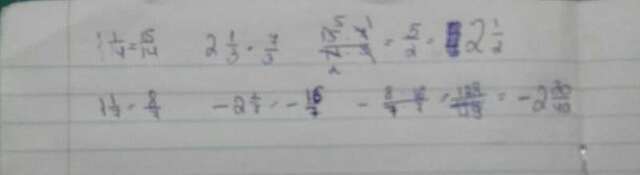 1 1/14 = 15/14 2 1/3 = 7/3 = 5/2 = 2 1/2
1 1/7 = 8/7 -2 2/7 = - 16/7 - 8/7 16/7 = 128/49 = -2 30/49